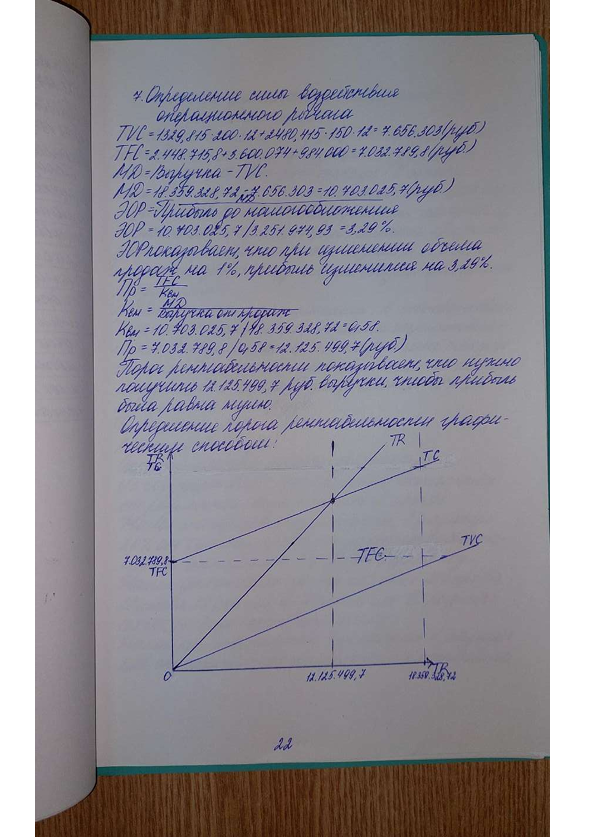 7. Определение силы воздействия
операционного рычага
TVC = 1329,815·200·12+2480,415·150·12=7.656.303(руб)
TFC = 2.448.715,8+3.600.074+984000=7.032.789,8(руб)
МД = Выручка - TVC.
МД = 18.359.328,72-7.656.303=10.703.025,7(руб)
МД
ЭОР = Прибыль до налогообложения
ЭОР = 10.703.025,7/3.251.974,93 = 3,29%.
ЭОР показывает, что при изменении объема
продаж на 1%, прибыль изменится на 3,29%.
Пр = TFC
Ксм
Ксм = МД
Выручка от продаж
Ксм = 10.703.025,7/18.359.328,72=0,58.
Пр = 7.032.789,8/0,58=12.125.499,7(руб)
Порог рентабельности показывает, что нужно
получить 12.125499,7 руб. выручки, чтобы прибыль
была равна нулю.
Определение порога рентабельности графи-
ческим способом:
TR
TC
TR
TC
7.032.789,8
TFC
TFC
TVC
0
12.125.499,7
18.359.328,72
TR
22